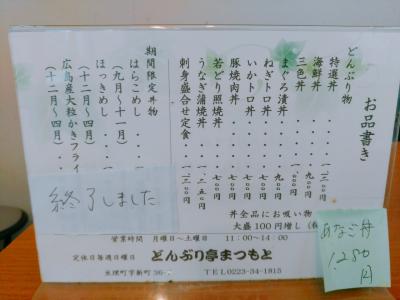 お品書き
どんぶり物
特選丼
海鮮丼
三色丼
まぐろ漬丼
ねぎトロ丼
いかトロ丼
豚焼肉丼
若どり照焼丼
うなぎ蒲焼丼
刺身盛合せ定食
期間限定丼物
はらこめし
（九月～十一月）
ほっきめし
（十二月～四月）
広島産大粒かきフライ
（十二月～四月）
終了しました
丼全品にお吸い物
大盛100円増し
営業時間 月曜日～土曜日 11:00～14:00
定休日毎週日曜日 どんぶり亭まつもと
亘理町字新町36- TEL 0223-34-1815
あなご丼
1,280円